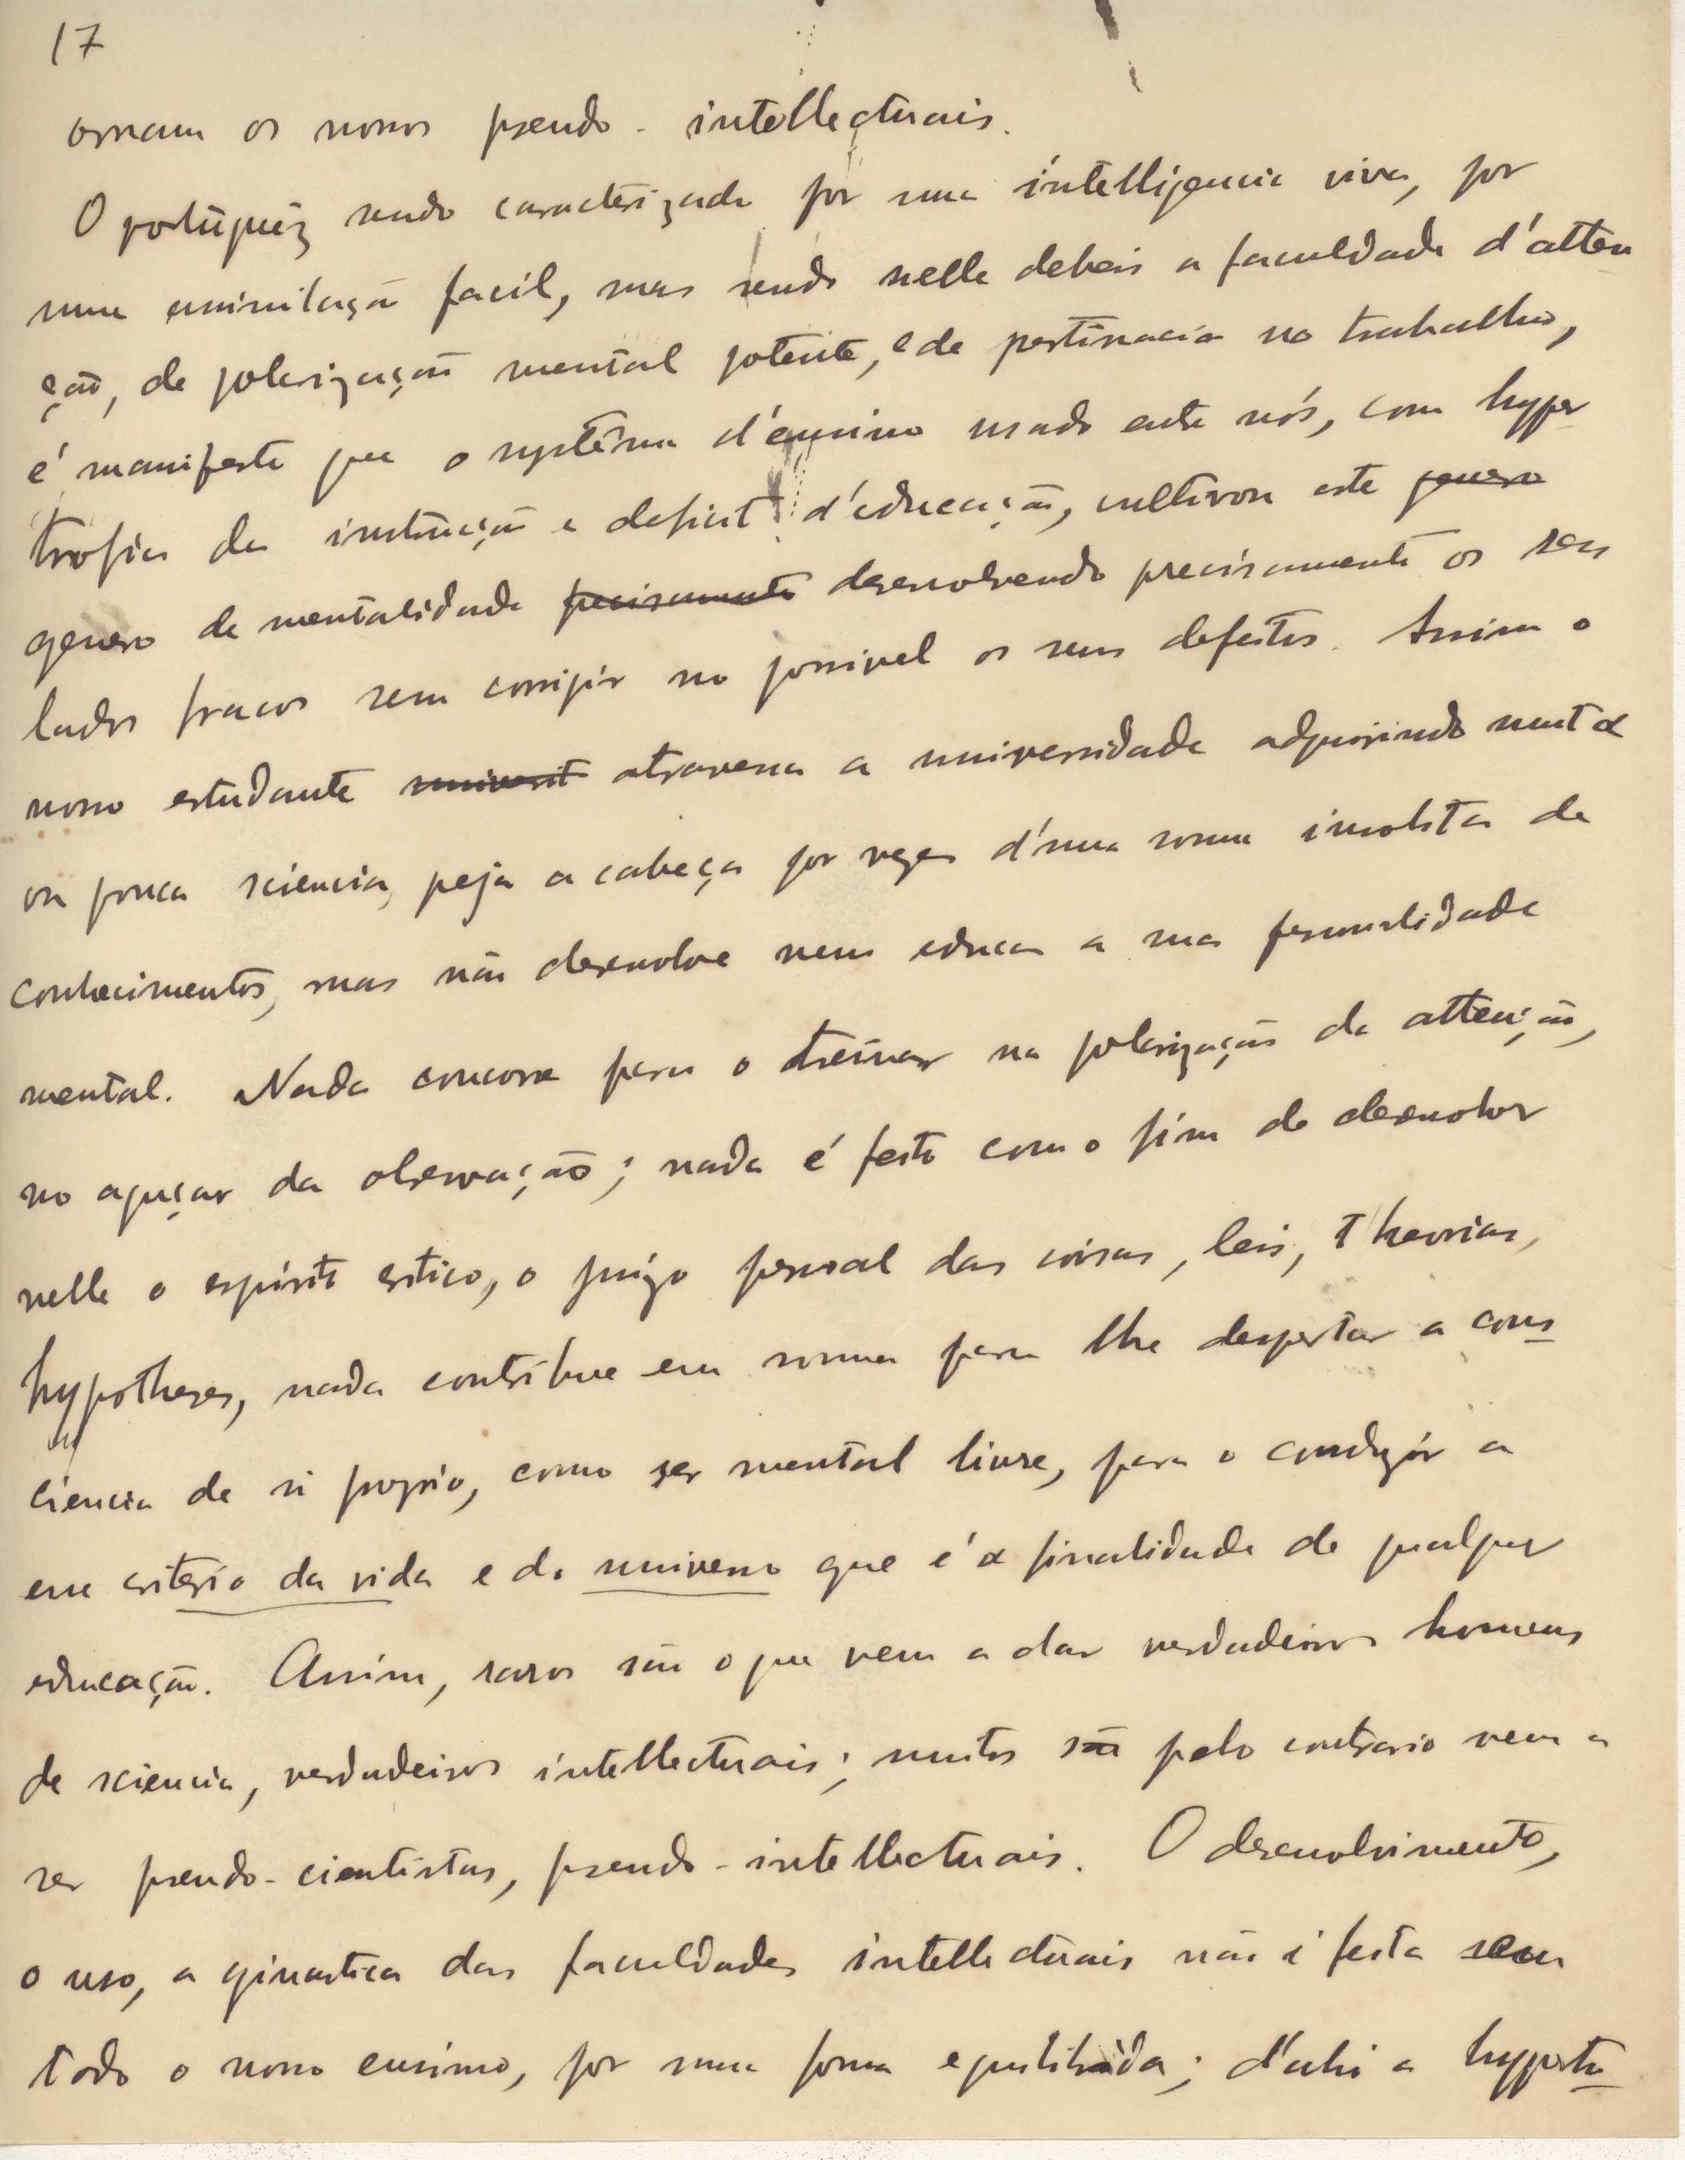 17
ornam os nossos pseudo-intellectuais.
O portuguêz sendo caracterizado por uma intelligencia viva, por
uma assimilação facil, mas sendo nelle debeis a faculdade d'atten
ção, de polarização mental potente, e de pertinacia no trabalho,
é manifesto que o systêma d'ensino usado entre nós, com hyper
trofia da instrução e deficit d'educação, cultivou este genero
genero de mentalidade precisamente desenvolvendo precisamente os seus
lados fracos sem corrigir no possivel os seus defeitos. Assim o
nosso estudante universit atravessa a universidade adquirindo muita
ou pouca sciencia, peja a cabeça por vezes d'uma somma insolita de
conhecimentos, mas não desenvolve nem educa a sua personalidade
mental. Nada concorre para o treinar na polarização da attenção,
no aguçar da observação; nada é feito com o fim de desenvolver
nelle o espirito critico, o juizo pessoal das coisas, leis, theorias,
hypotheses, nada contribue em somma para lhe despertar a cons-
ciencia de si proprio, como ser mental livre, para o conduzir a
um criterio da vida e do universo que é a finalidade de qualquer
educação. Assim, raros são o que vem a dar verdadeiros homens
de sciencia, verdadeiros intellectuais; muitos são pelo contrario vem a
ser pseudo-cientistas, pseudo-intellectuais. O desenvolvimento,
o uso, a ginastica das faculdades intellectuais não é feita em
todo o nosso ensino, por uma forma equilibrada; d'ahi a hypertro-